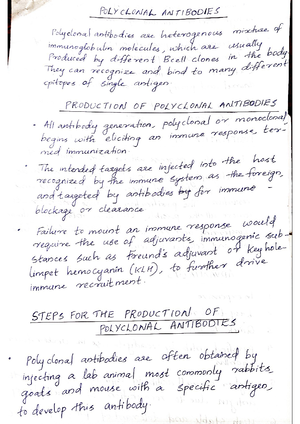 POLYCLONAL ANTIBODIES
Polyclonal antibodies are heterogenous mixture of
immunoglobulin molecules, which are usually
Produced by different Bcell clones in the body
They can recognize and bind to many different
epitopes of single antigen.
PRODUCTION OF POLYCLONAL ANTIBODIES
• All antibody generation, polyclonal or monoclonal,
begins with eliciting an immune response, ter-
med immunization
• The intended targets are injected into the host
recognized by the immune system as the foreign,
and targeted by antibodies for immune -
blockage or clearance
• Failure to mount an immune response would
require the use of adjuvants, immunogenic sub-
stances such as Freund's adjuvant or keyhole-
limpet hemocyanin (KLH), to further drive
immune recruitment.
STEPS FOR THE PRODUCTION OF
POLYCLONAL ANTIBODIES
• Polyclonal antibodies are often obtained by
injecting a lab animal most commonly rabbits,
goats and mouse with a specific antigen,
to develop this antibody.